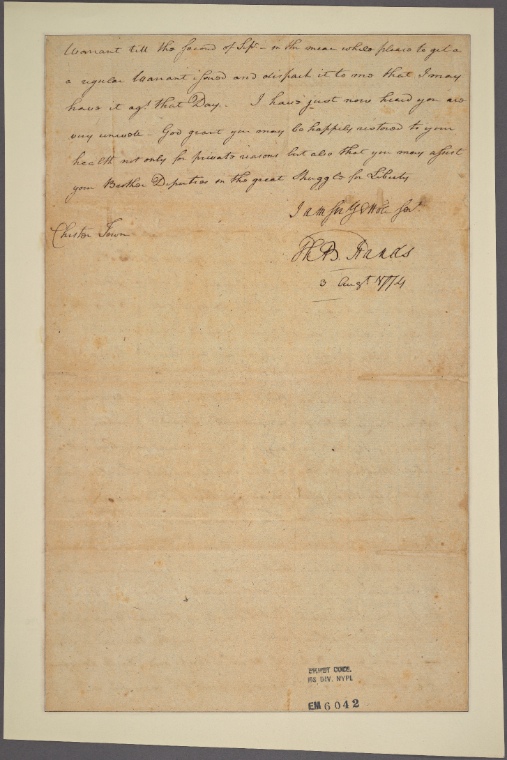 Warrant till the second of Sept - in the mean while please to get a
a regular Warrant issued and dispach it to me that I may
have it agt that Day. I have just now heard you are
very unwell. God grant you may be happily restored to your
health not only for private reasons but also that you may assist
your Brother Deputies in the great Struggle for Liberty
I am Sir Yr Hble Sert
Chester Town
Th B. Hands
3 Augt 1774
EMMET COLL.
MS DIV. NYPL
EM 6042